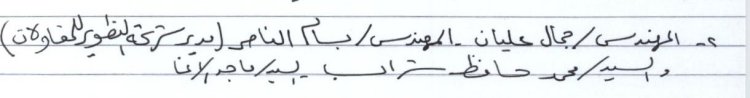 ٢- المهندس/جمال عليان - المهندس/بسام الناصر (مدير شركة التطوير للمقاولات)
والسيد/محمد حافظ شراب - السيد/ماجد الأغا